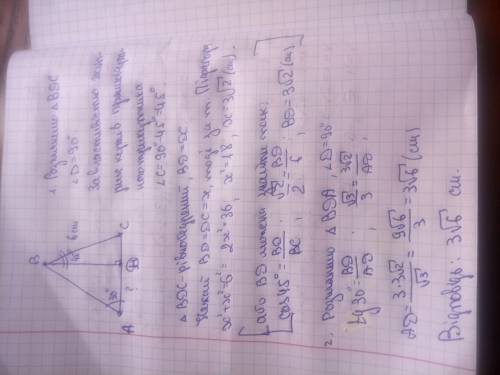 B
45°
6 см
30°
?
A
D
C
1. Розглянемо △ BDC
∠D=90°
За властивістю гост-
рих кутів прямокут-
ного трикутника
∠C=90°-45°=45°.
△ BDC-рівнобедрений, BD=DC
Нехай BD=DC=x, тоді за т. Піфагора
x²+x²=6² ; 2x²=36, x²=18, x=3√2 (см).
або BD можна знайти так:
cos45°= BD/BC ; √2/2 = BD/6 ; BD=3√2 (см)
2. Розглянемо △ BDA, ∠D=90°
tg 30°= BD/AD ; √3/3 = 3√2/AD ;
AD= 3·3√2/√3 = 9√6/3 = 3√6 (см)
Відповідь: 3√6 см.